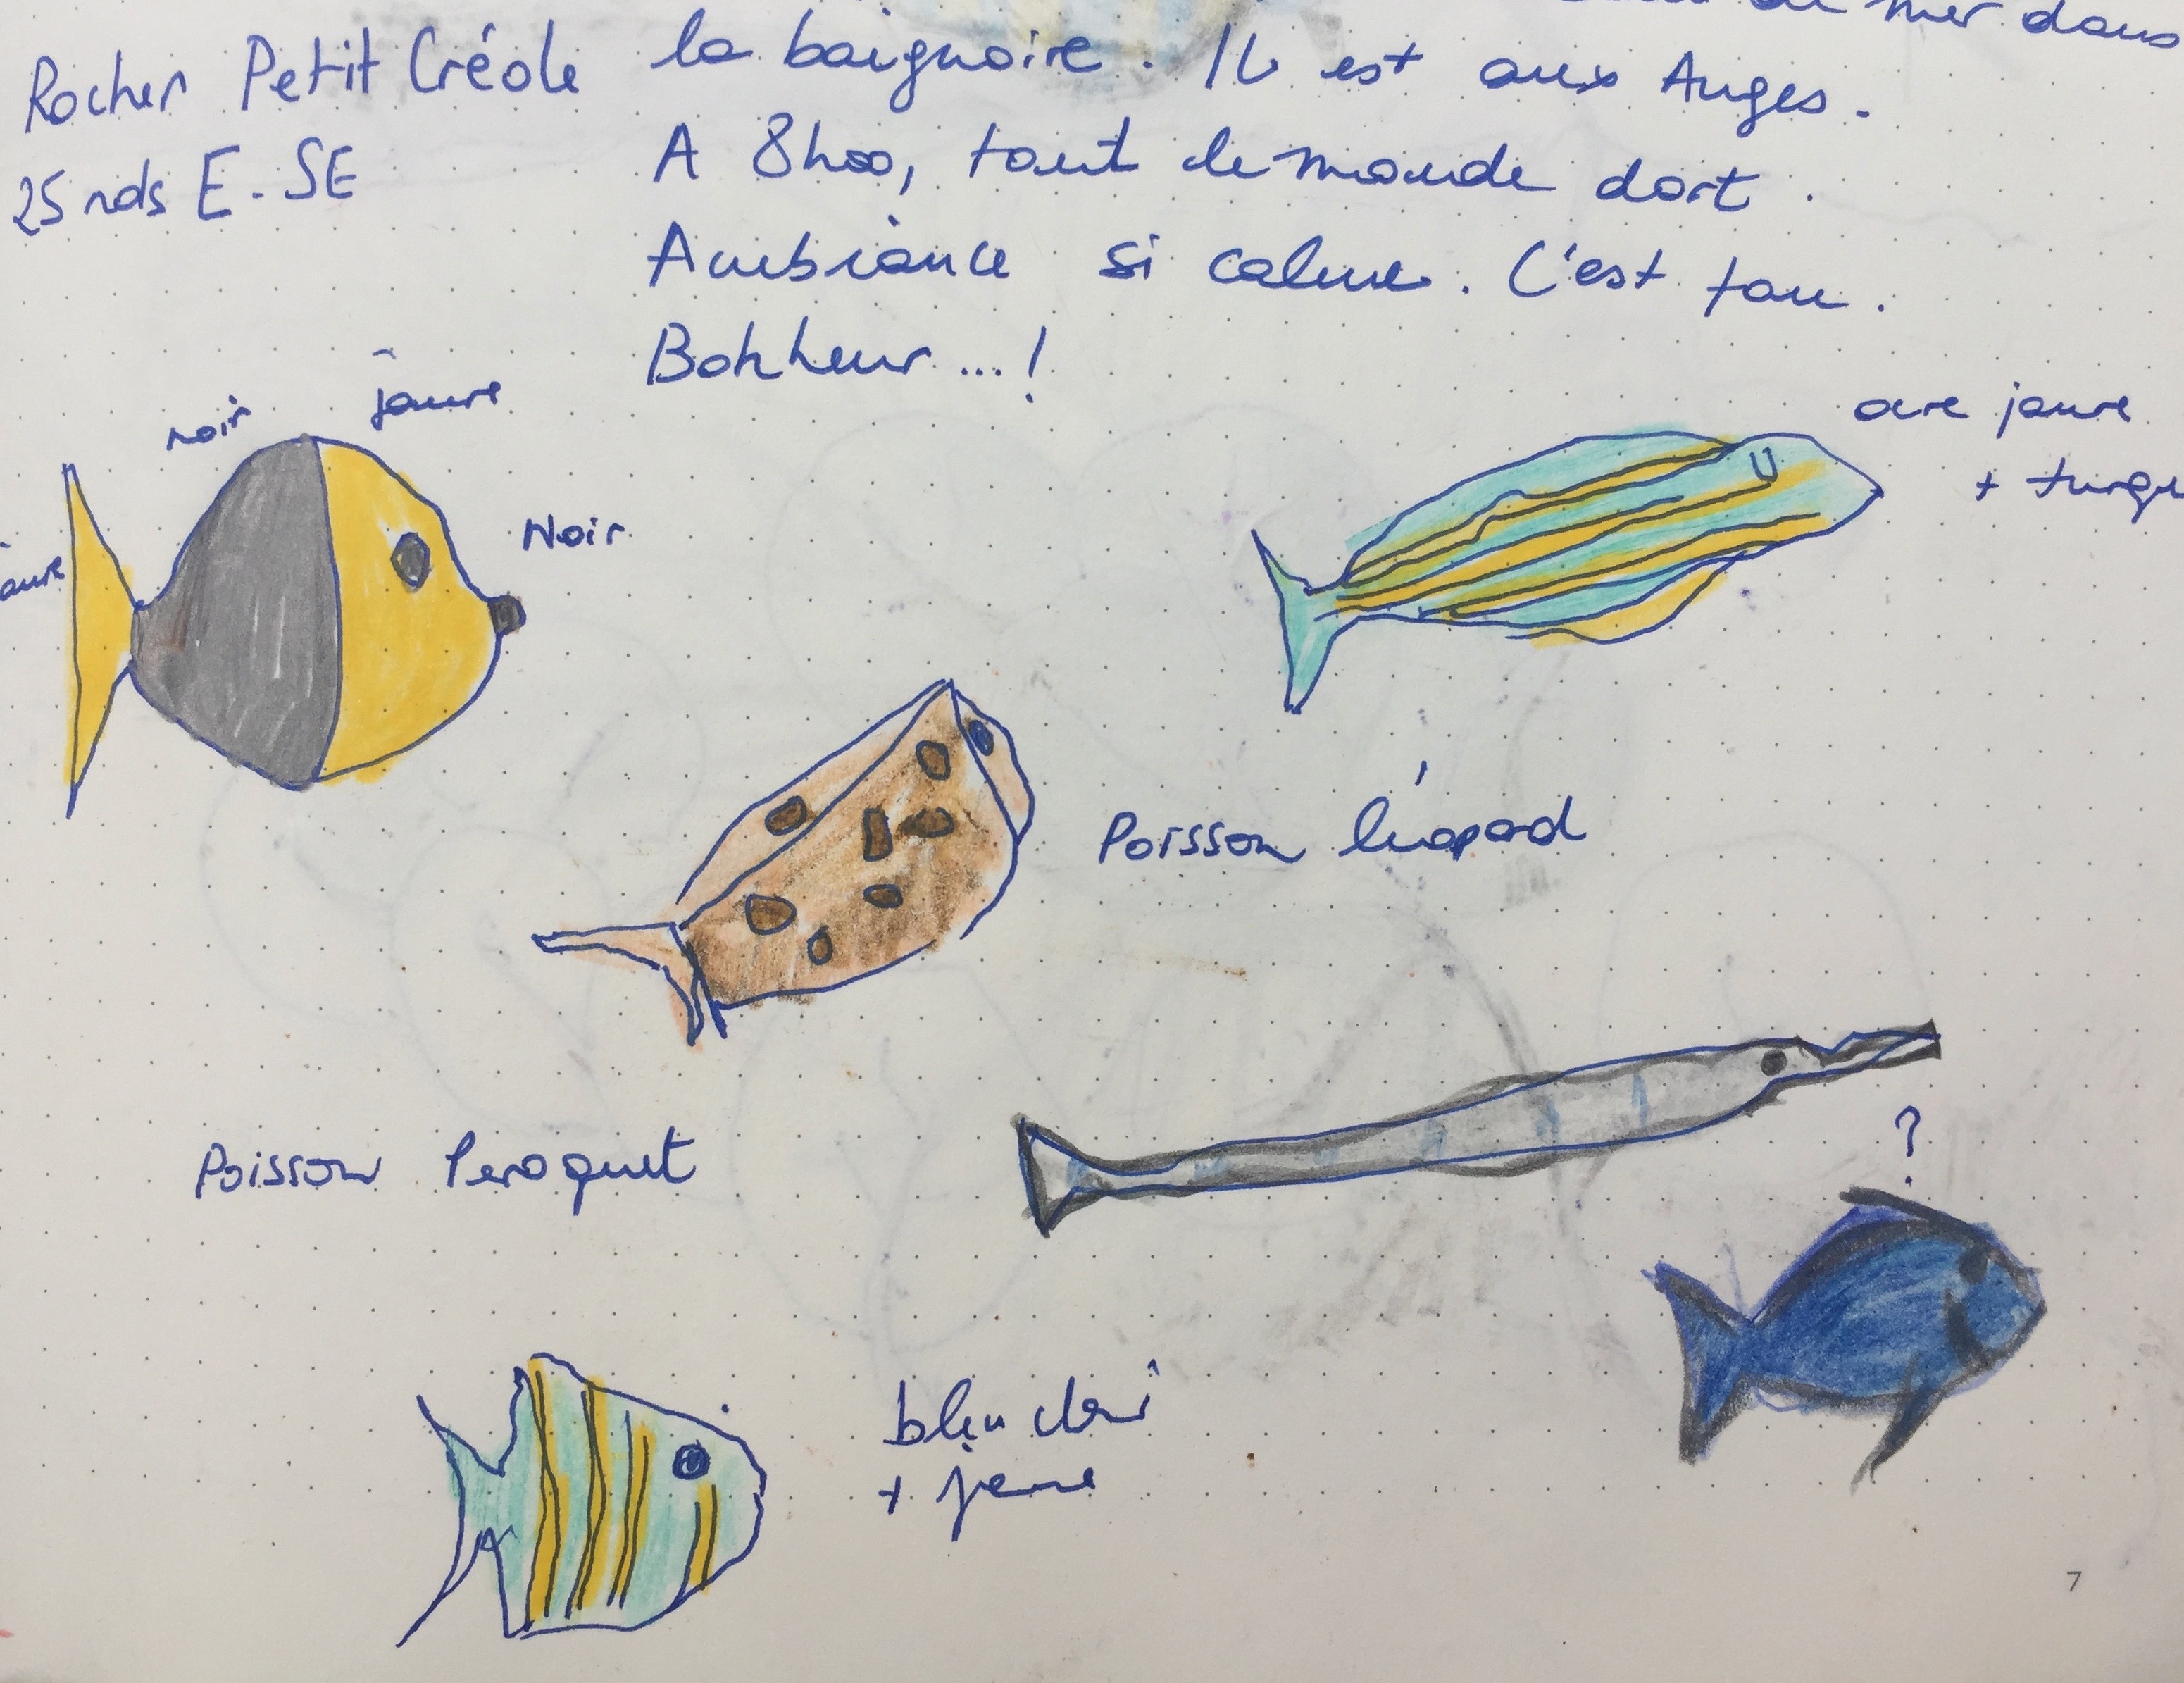 de mer dans
Rocher Petit Créole
25 nds E-SE
la baignoire. Il est aux Anges.
A 8h00, tout le monde dort.
Ambiance si calme. C'est fou.
Bonheur...!
noir
jaune
Noir
aune
ocre jaune
+ turqu
Poisson léopard
Poisson Peroquet
?
bleu clair
+ jaune
7